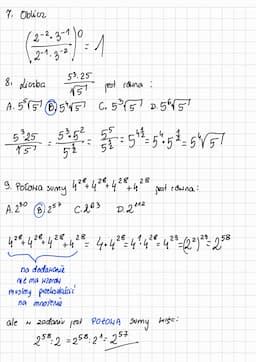 7. Oblicz
(2⁻² · 3⁻¹ / 2⁻¹ · 3⁻²)⁰ = 1
8. Liczba 5³·25/√5 jest równa :
A. 5⁵√5 B. 5⁴√5 C. 5³√5 D. 5⁶√5
5³·25/√5 = 5³·5²/5^½ = 5⁵/5^½ = 5^4½ = 5⁴·5^½ = 5⁴√5
9. Połowa sumy 4²⁸+4²⁸+4²⁸+4²⁸ jest równa :
A. 2³⁰ B. 2⁵⁷ C. 2⁶³ D. 2¹¹²
4²⁸+4²⁸+4²⁸+4²⁸ = 4·4²⁸ = 4¹·4²⁸ = 4²⁹ = (2²)²⁹ = 2⁵⁸
na dodawanie
nie ma wzoru
musimy przekształcić
na mnożenie
ale w zadaniu jest POŁOWĄ sumy więc:
2⁵⁸:2 = 2⁵⁸:2¹ = 2⁵⁷